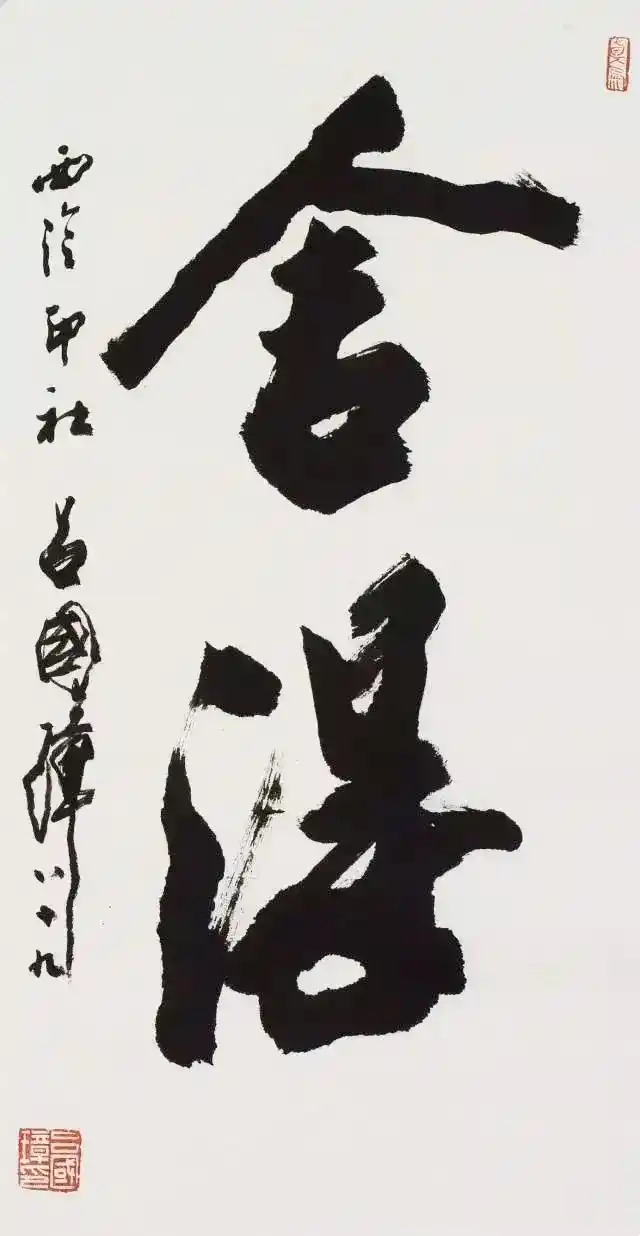 舍得
西泠印社 吕國璋 八十九
吕國璋印